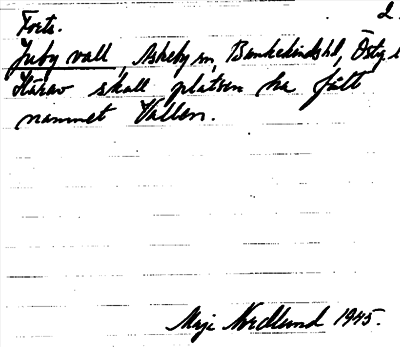 Forts. 2.
Juby vall, Askeby sn, Bankekinds hd, Östg
Härav skall platsen ha fått
namnet Vallen.
Maj Nordlund 1945.